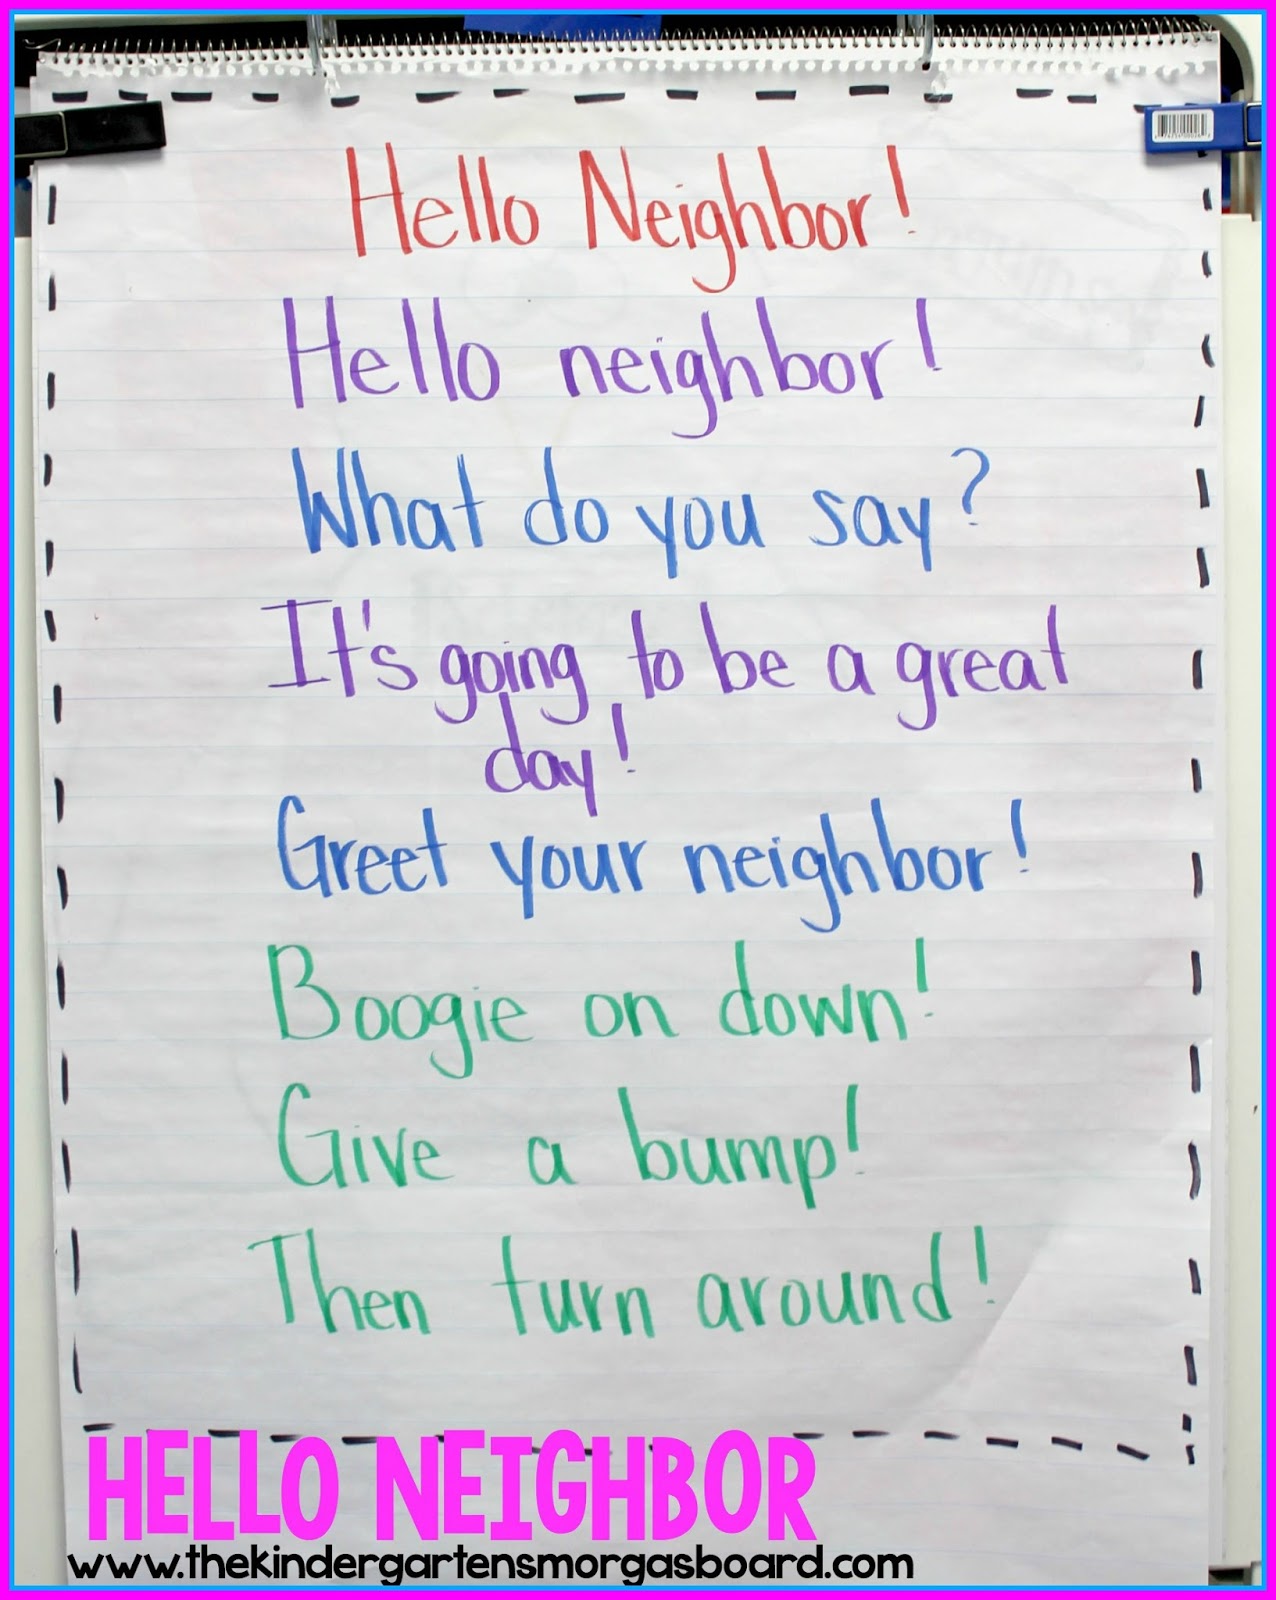 Hello Neighbor!
Hello neighbor!
What do you say?
It's going to be a great
day!
Greet your neighbor!
Boogie on down!
Give a bump!
Then turn around!
HELLO NEIGHBOR
www.thekindergartensmorgasboard.com